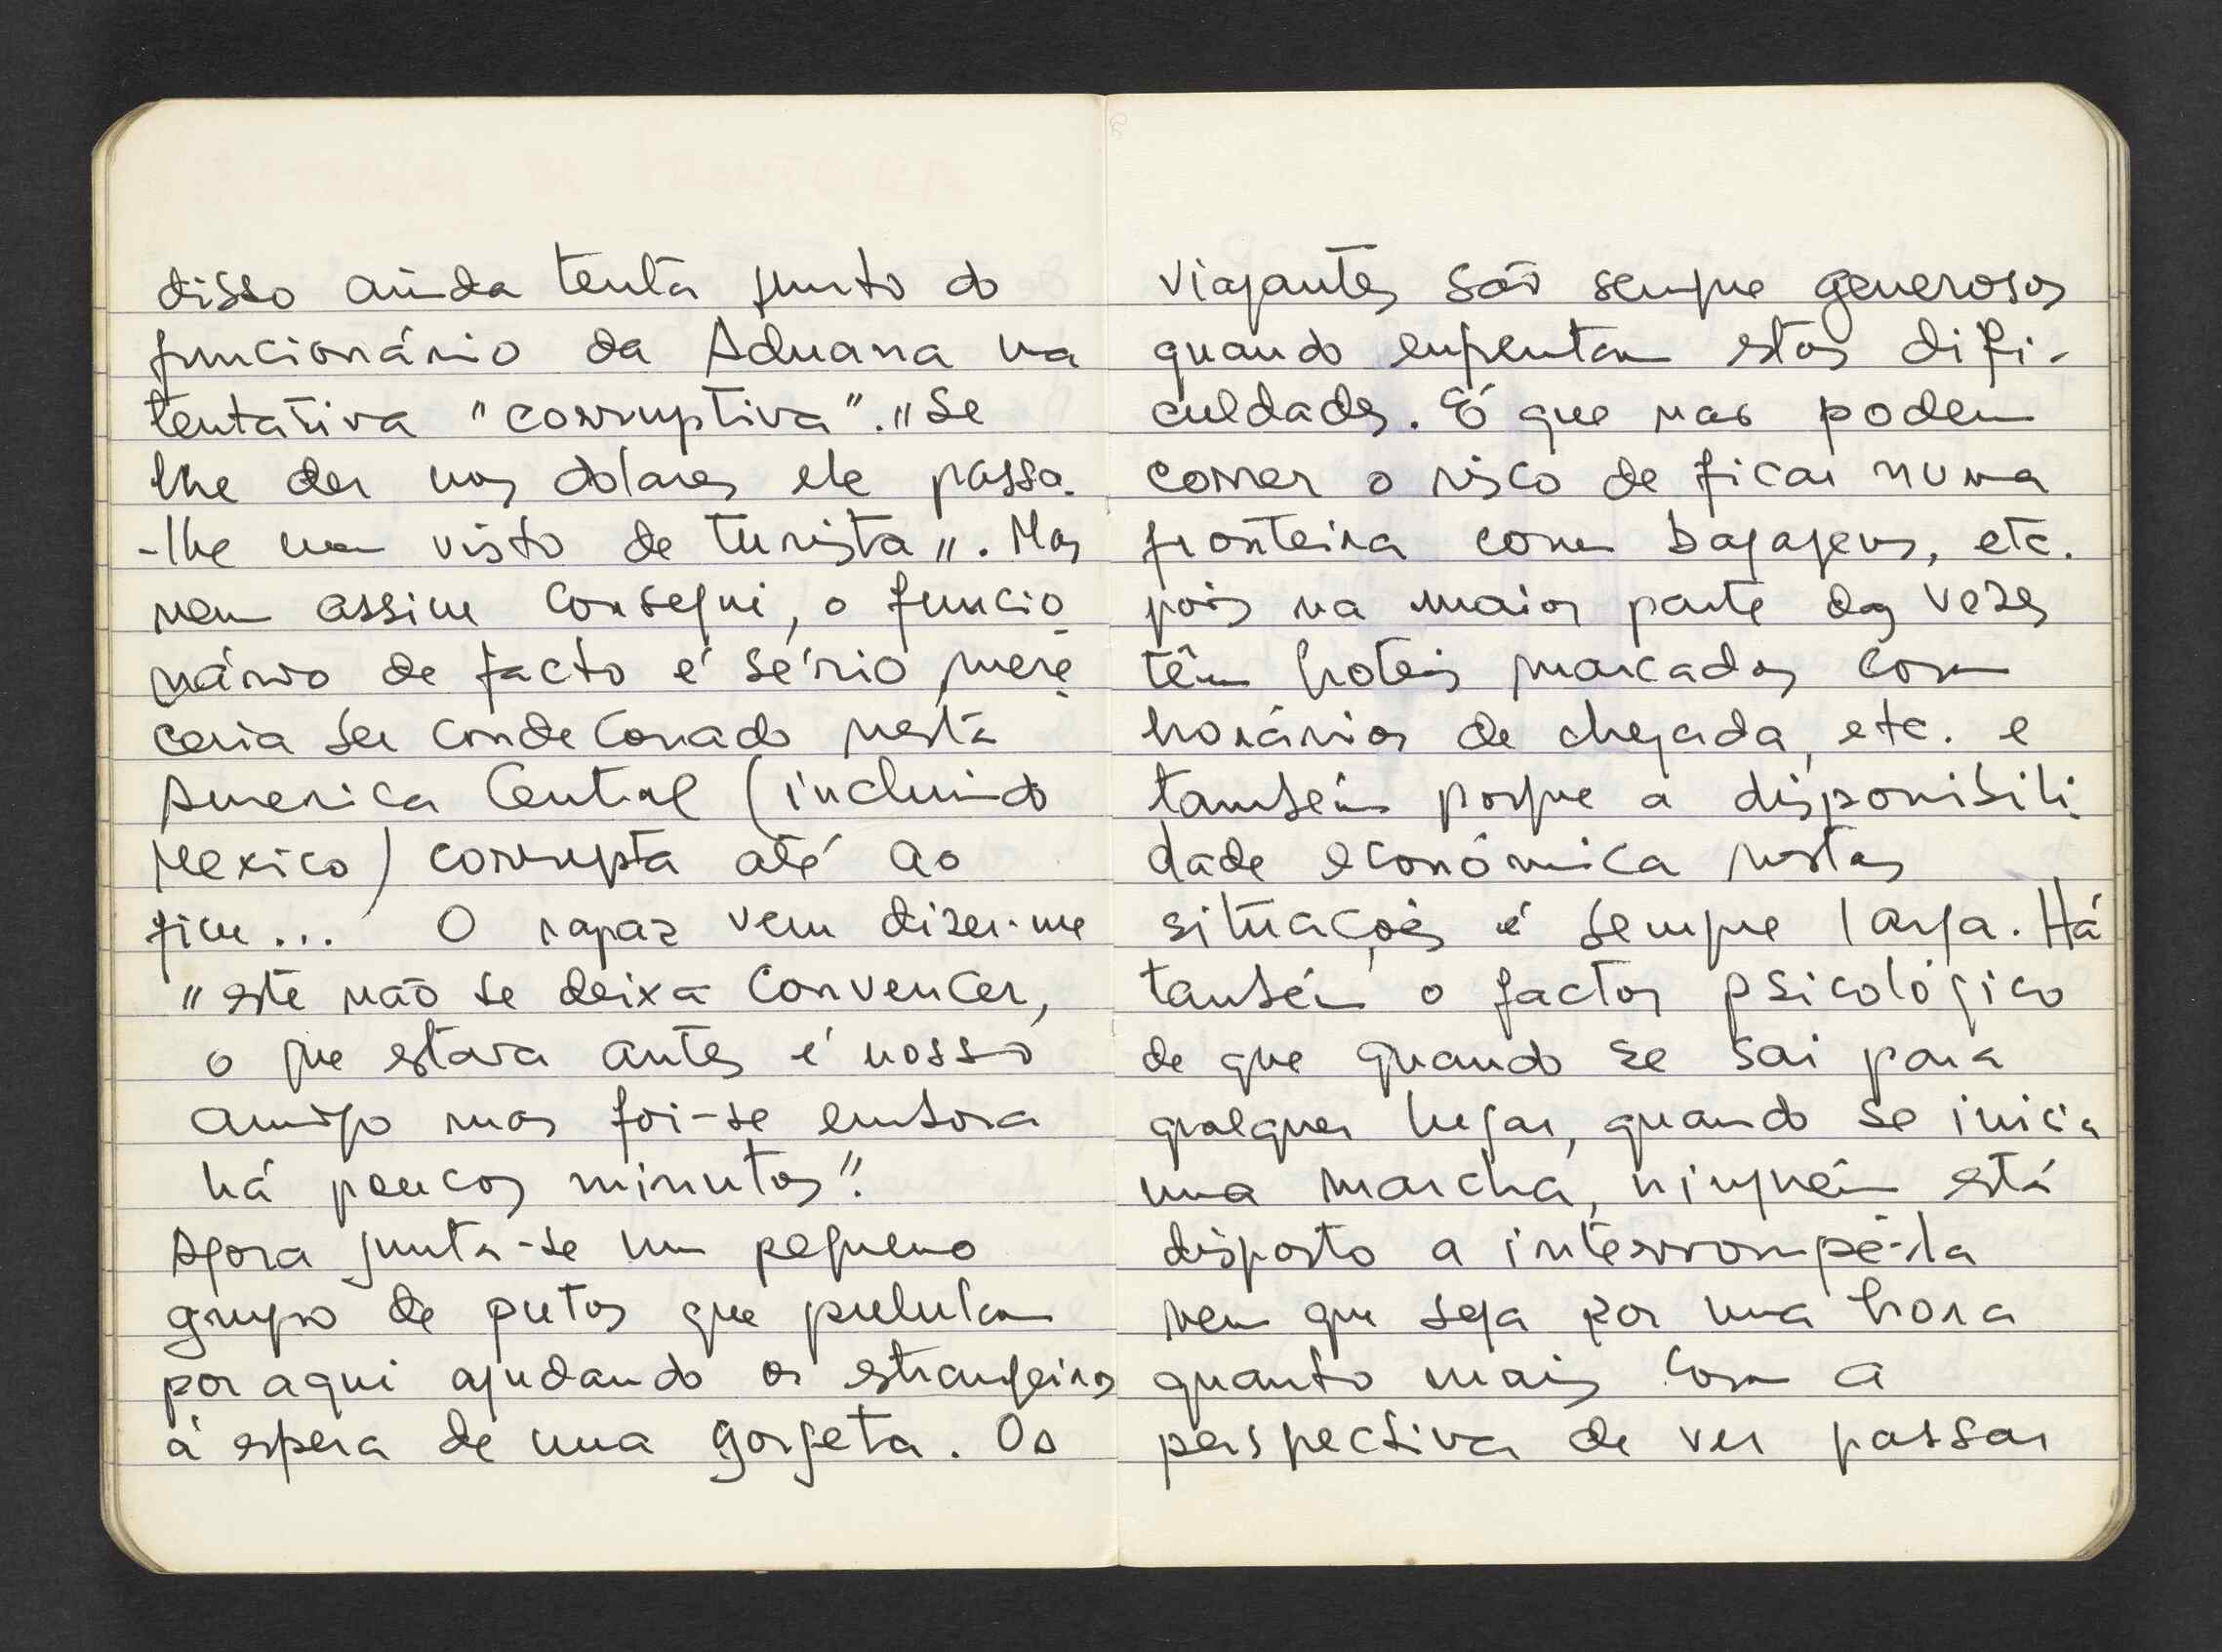 disso ainda tenta junto do
funcionário da Aduana na
tentativa "corruptiva". "Se
lhe der uns dolares ele passa-
-lhe um visto de turista". Mas
nem assim consegui, o funcio
nário de facto é sério, mere
ceria ser condecorado nesta
America Central (incluindo
Mexico) corrupta até ao
fim... O rapaz vem dizer-me
"este não se deixa convencer,
o que estava antes é nosso
amigo mas foi-se embora
há poucos minutos".
Agora junta-se um pequeno
grupo de putos que pululam
por aqui ajudando os estrangeiros
á espera de uma gorjeta. Os
viajantes são sempre generosos
quando enfrentam estas difi-
culdades. É que nao podem
correr o risco de ficar numa
fronteira com bagagens, etc.
pois na maior parte das vezes
têm hoteis marcados com
horários de chegada, etc. e
também porque a disponibili
dade económica nestas
situações é sempre larga. Há
também o factor psicológico
de que quando se sai para
qualquer lugar, quando se inicia
uma marcha, ninguém está
disposto a interrompê-la
nem que seja por uma hora
quanto mais com a
perspectiva de ver passar